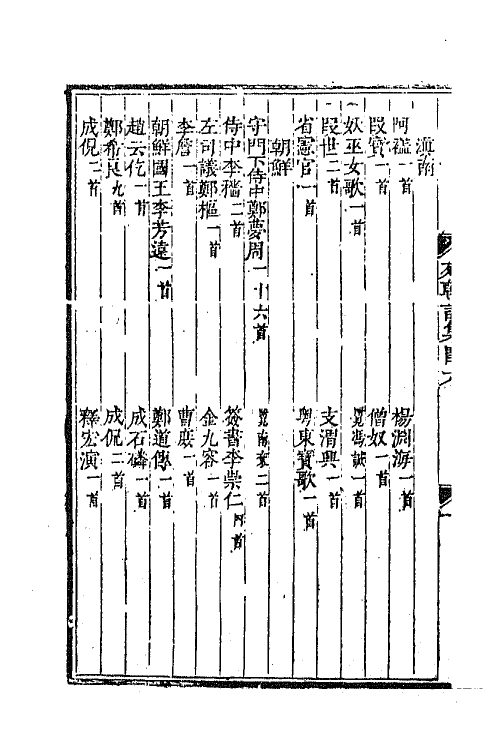 滇南
阿𥖎一首 楊淵海一首
段寶一首 僧奴一首
妖巫女歌一首
段世二首 支渭興一首
省憲官一首 粵東寶歌一首
朝鮮
守門下侍中鄭夢周一十六首
侍中李穡二首 簽書李崇仁四首
左司議鄭樞一首 金九容一首
李詹一首 曹庶一首
朝鮮國王李芳遠一首 鄭道傳一首
趙云仡一首 成石磷一首
鄭希良九首 成侃二首
成俔一首 釋宏演一首